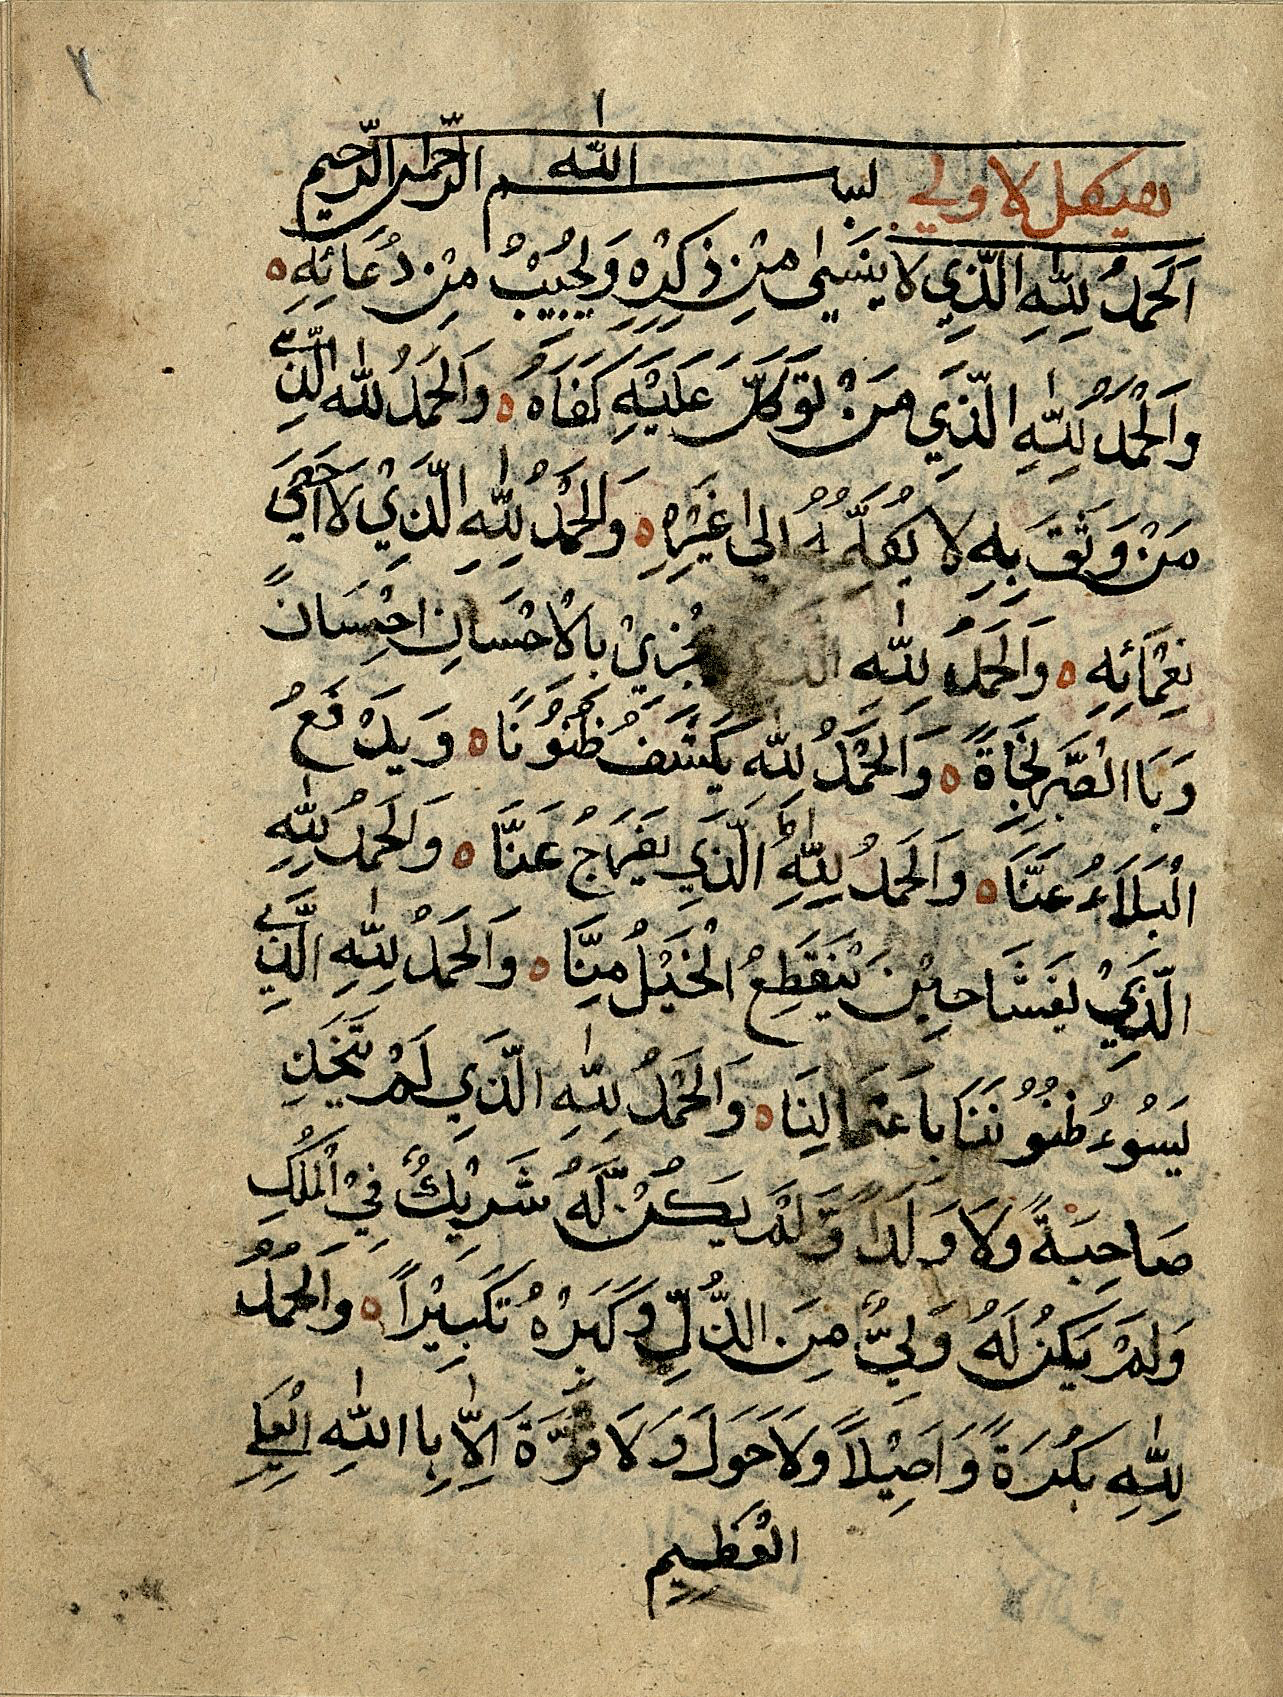 هيكل لاولي بسم الله الرحمن الرحيم
اَلحَمدُ لِلّٰهِ الَّذِي لا ينَسىٰ مَنْ ذَكَرَه وَلجُيبُ مِنْ دُعَائِهِ ه
وَاَلحْمَدُ لِلّٰهِ الَّذِي مَنْ تَوَكَّلَ عَلَيْهِ كَفَاهُ ه وَاَلحَمدُ لله الَّذِي
مَنْ وَثَقَ بِهِ لا الى غَيْرِهِ ه وَالحْمدُ لِلّٰهِ الَّذِيْ لاَ احَصٰي
نِعْمَائِهِ ه وَاَلحَمَدُ لِلّٰهِ الَّذي يُجْزيْ بِالْاحْسَانِ احِسْانً
وَبَا الصَّبرِ نجَاةً ه وَاَلحْمَدُ لِلّٰهِ يَكَشفُ ظُنُونًا ه وَيدَفَعُ
الْبَلَاءُ عَنَّا ه وَاَلحَمدُ لِلّٰهِ الَّذِي يفَرجُ عَنَّا ه وَاَلحَمدُ لِلّٰهِ
الَّذِيْ يغَشَا حِيْنَ يَنْقَطِعُ الْحَيْلُ مِنَّا ه وَاَلحَمدُ لِلّٰهِ الَّذِي
يَسُوءُ ظُنُونَنَا بِاَعْمَالِنَا ه وَاَلحَمدُ لِلّٰهِ الَّذِي لَمْ يَتَّخِذِ
صَاحِبَةً وَلَا وَلَداً وَّلَمْ يَكُنْ لَّهُ شَرِيْكٌ فِيْ الْمُلْكِ
وَلَمْ يَكُنْ لَهُ وَلِيٌّ مِنَ الذُّلِّ وَكَبِرْهُ تَكَبِيْراً ه وَاَلحَمدُ
لِلّٰهِ بَكُرَةً وَاَصِيْلاً وَلَا حَوَلَ وَلَا قُوَّةَ اِلاَّ بِا اللّٰهِ الْعَلِي
الْعَظِيم